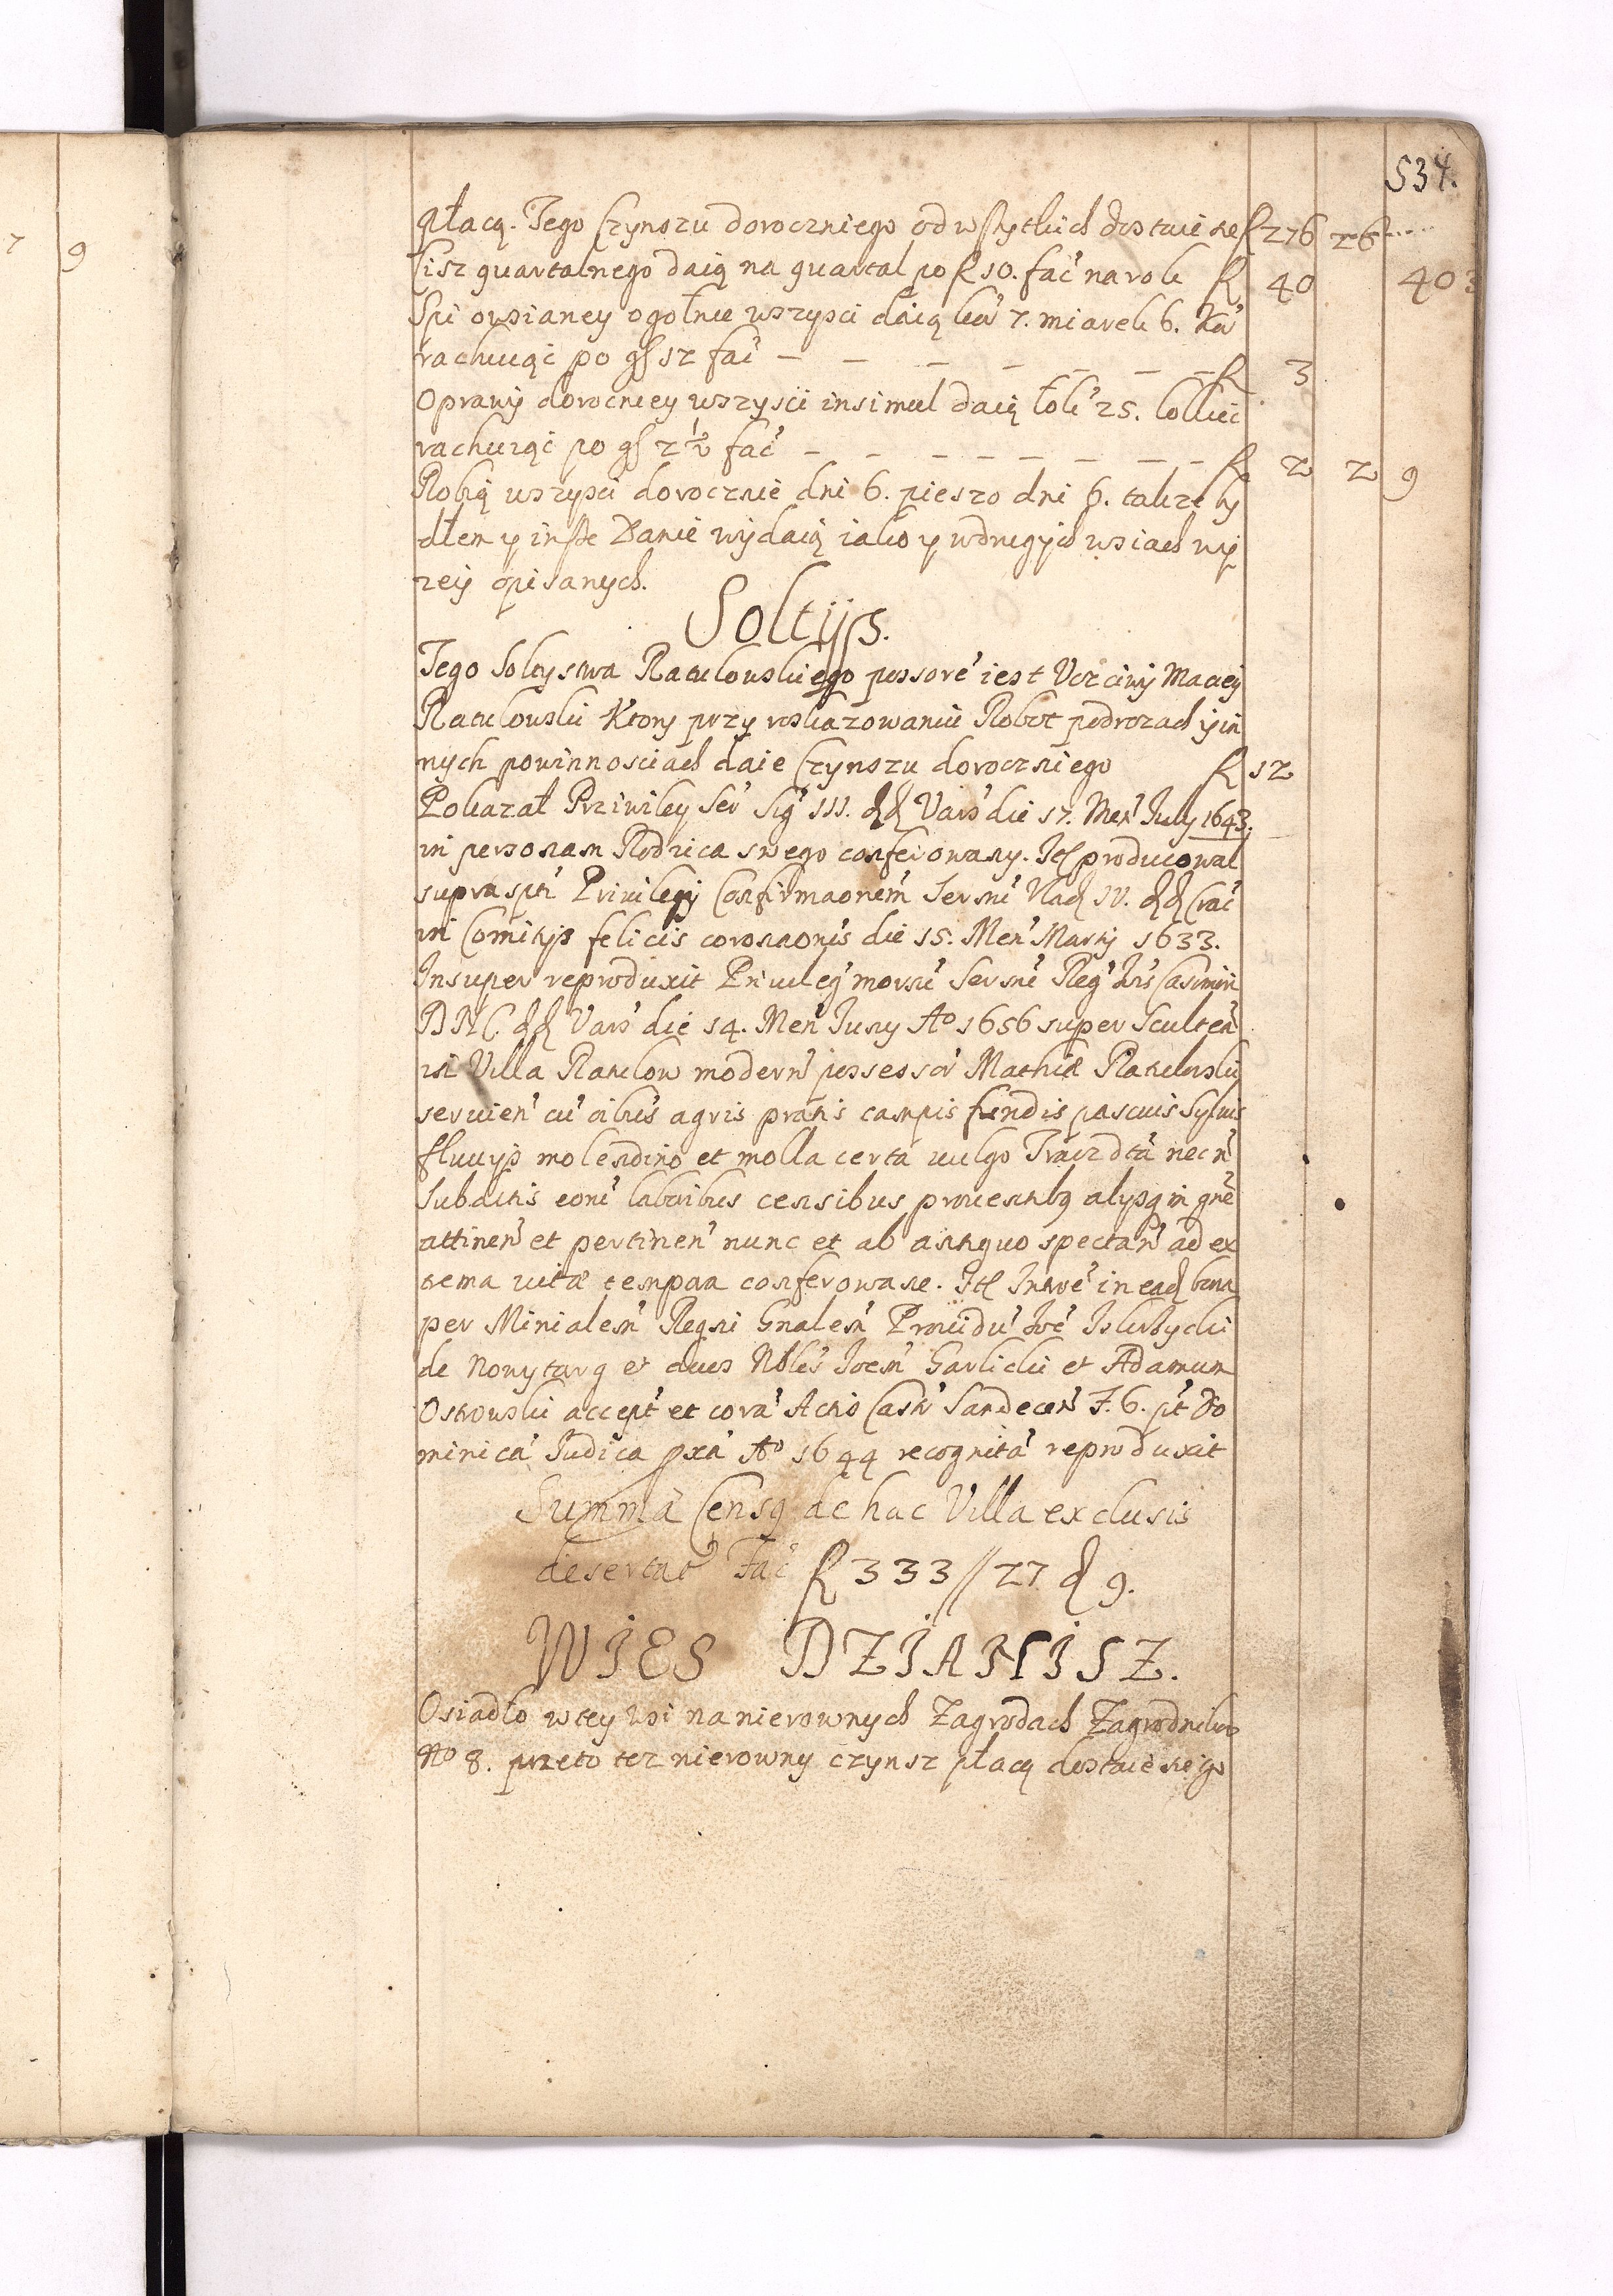 534.
7 9
płacą. Tego Czynszu doroczniego od wszytkich dostaie się f 276 26 ....
Cisz quartalnego daią na quartal po f 10. fac' na rok f 40 40
Spi owsianey ogołnie wszysci daią 7. miarek 6.
rachuiąc po gſ 12 fac' — — — — — — — f 3
Oprawÿ doroczney wszysci insimul daią łok' 25. łokiec
rachuiąc po gſ 2 ½ fac' — — — — — — — — f 2 2 9
Robią wszysci dorocznie dni 6. pieszo dni 6. takze by
dłem y inſze Danie wÿdaią iako y wdrugÿch wsiach wÿ
zeÿ opisanych.
Soltÿs.
Tego Soltystwa Ratulowskiego possore' iest Vczciwÿ Macieÿ
Ratulowski Ktory przy roskazowaniu Robot podrozach ÿ in
nych powinnosciach daie Czynszu doroczniego f 12
Pokazał Prziwiley Ser' Sig' III. Vars' die 17. Men' July 1643.
in personam Rodzica swego conferowany. producowal
supra spti' Privilegÿ Confirmaonem' Sersmi' Vlad IV. Crac'
in Comitÿs felicis coronaonis die 15. Men' Martÿ 1633.
Insuper reproduxit Priuileg' Sersmi' Reg' Casimiri
Vars' die 14. Men' Juny Aº 1656 super Scultet'
in Villa Ratulow modern' possessor' Mathiæ Ratulowski
seruien' cu' oibus' agris pratis campis fundis pascuis Syluis
fluuÿs molendino et molla certa uulgo Tracz dta' nec n'
Subditis laboribus censibus prouentibq alÿsq in gne'
attinen' et pertinen' nunc et ab antiquo spectan' ad ex
trema uitæ tempora conferowane. in ead
per Minialem' Regni Gnalem' Prouidu'
de Nowytarg et duos Nbles' Joem' Garlicki et Adamum
Ostrowski accept' et cora' Actis Castr' Sandecen' F. 6. pt' Do
minica' Judica pxa' Aº 1644 recognita' reproduxit
Summa Censq de hac Villa exclusis
desertat' Fac' f 333 // 27 d 9.
WIES DZIANISZ.
Osiadło w tey Wsi na nierownych Zagrodach Zagrodnikow
Nº 8. przeto tez nierowny czynsz płacą dostaie się go